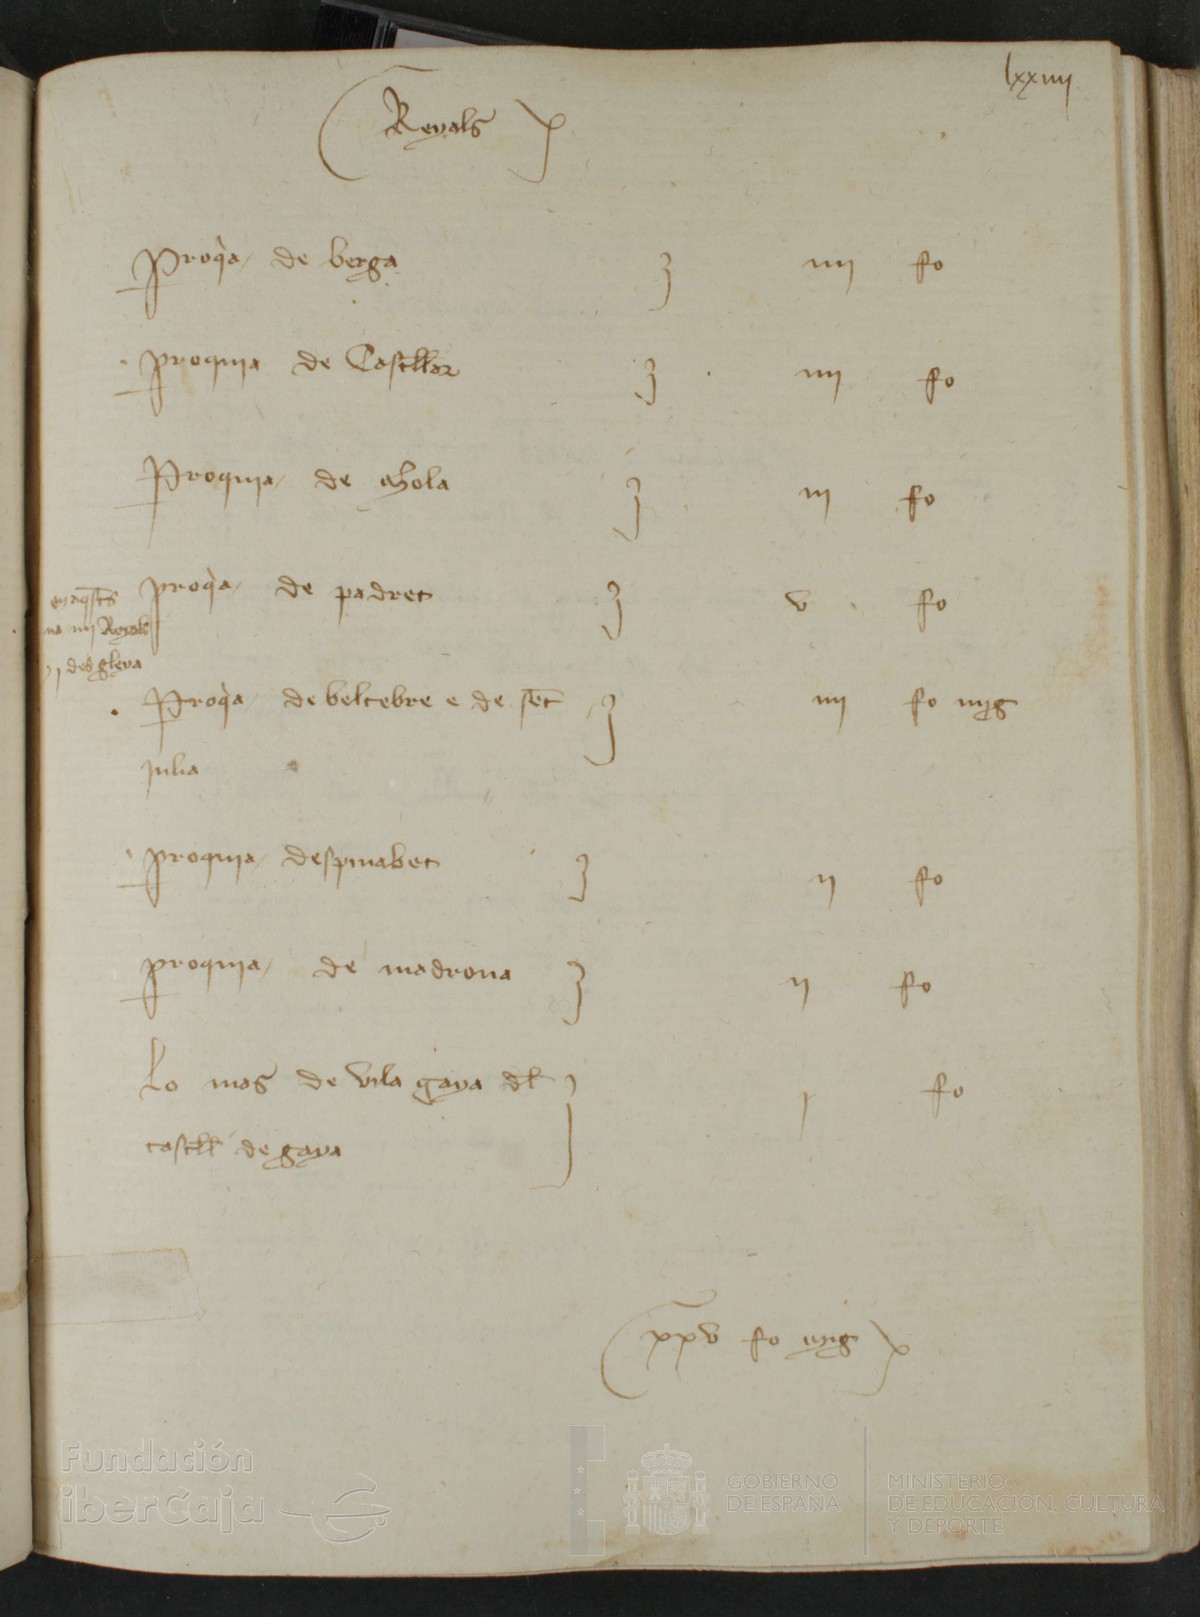 lxxiiij
Reyals
Proqia de berga iiij fo
proquia de Castellar iiij fo
Proquia de iij fo
proqia de padret v fo
en aqsts
iiij Reyals
des gleya
Proqia de beltebre e de sct iiij fo mig
julia
proquia despinabet ij fo
proquia de madrona ij fo
Lo mas de vila gaya dl j fo
castell de gaya
xxv fo mig
Fundación
iberCaja
GOBIERNO
DE ESPAÑA
MINISTERIO
DE EDUCACIÓN, CULTURA
Y DEPORTE